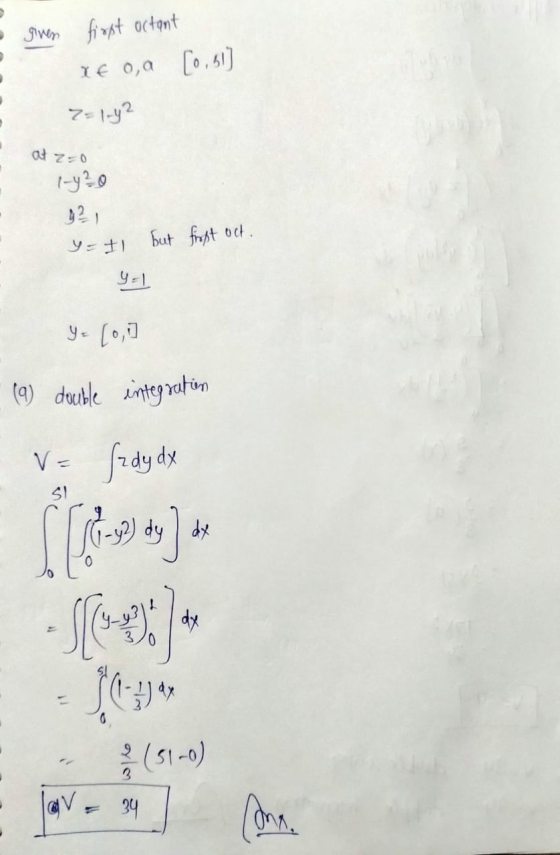 given first octant
x ∈ 0,a [0,51]
z = 1-y²
at z=0
1-y²=0
y²=1
y = ±1 but first oct.
y=1
y = [0,1]
(a) double integration
V = ∫z dy dx
∫₀⁵¹ [∫₀¹(1-y²) dy] dx
= ∫[(y-y³/3)₀¹] dx
= ∫₀⁵¹ (1-1/3) dx
= 2/3 (51-0)
V = 34 Ans.